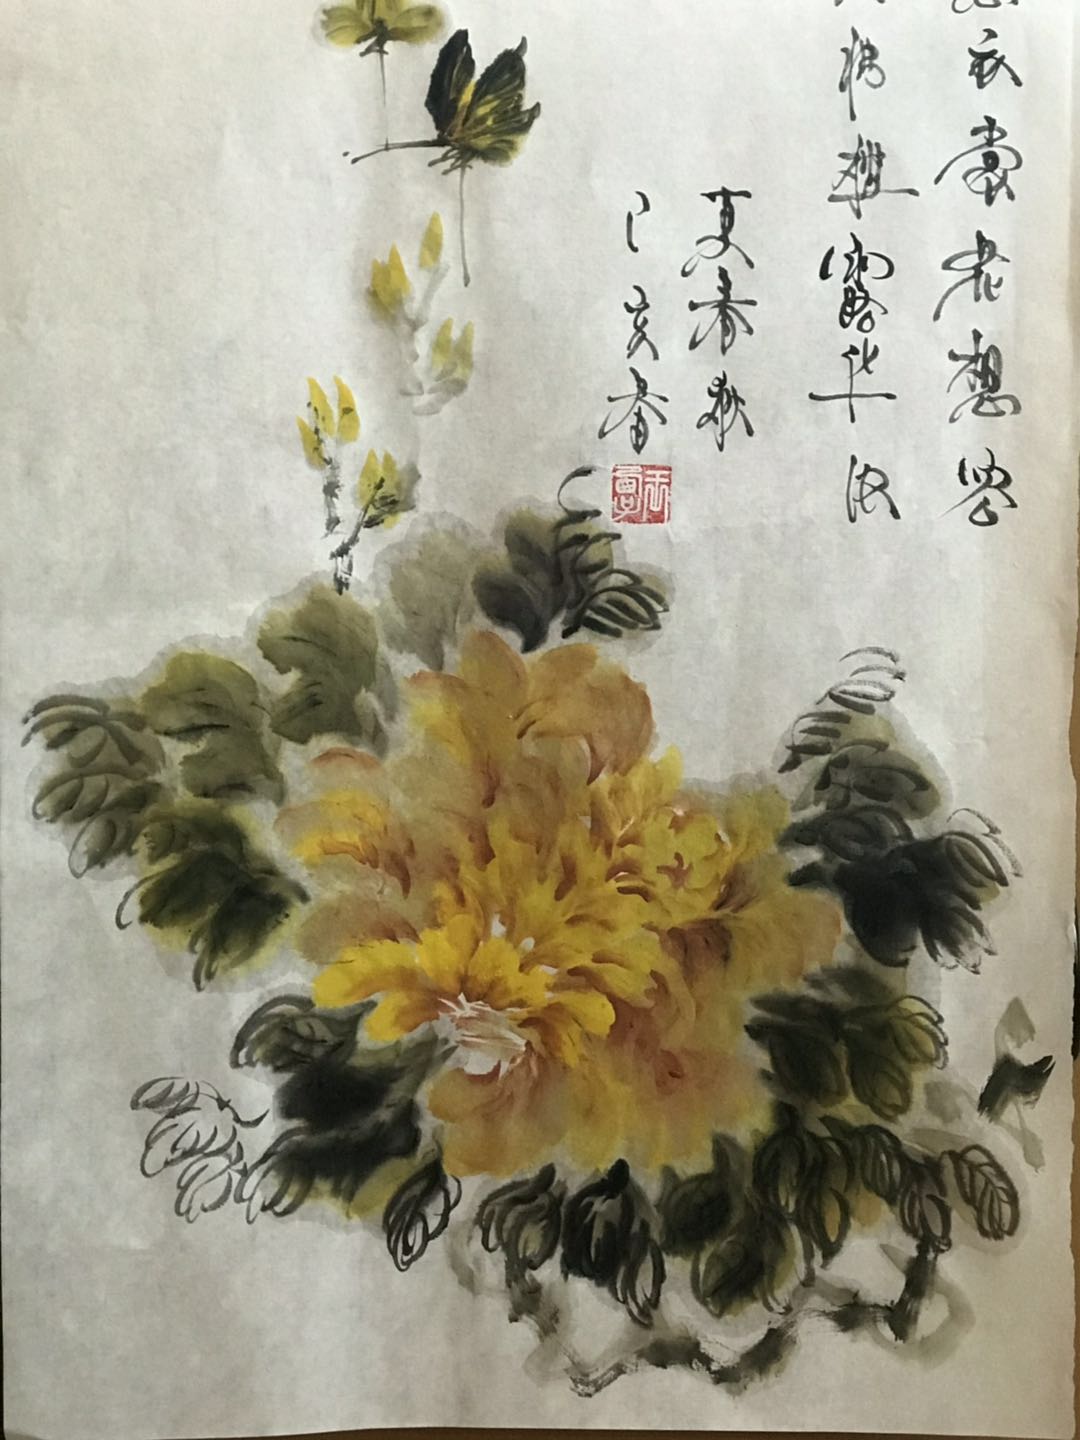 衣裳花想容
拂槛露华浓
夏春
己亥春